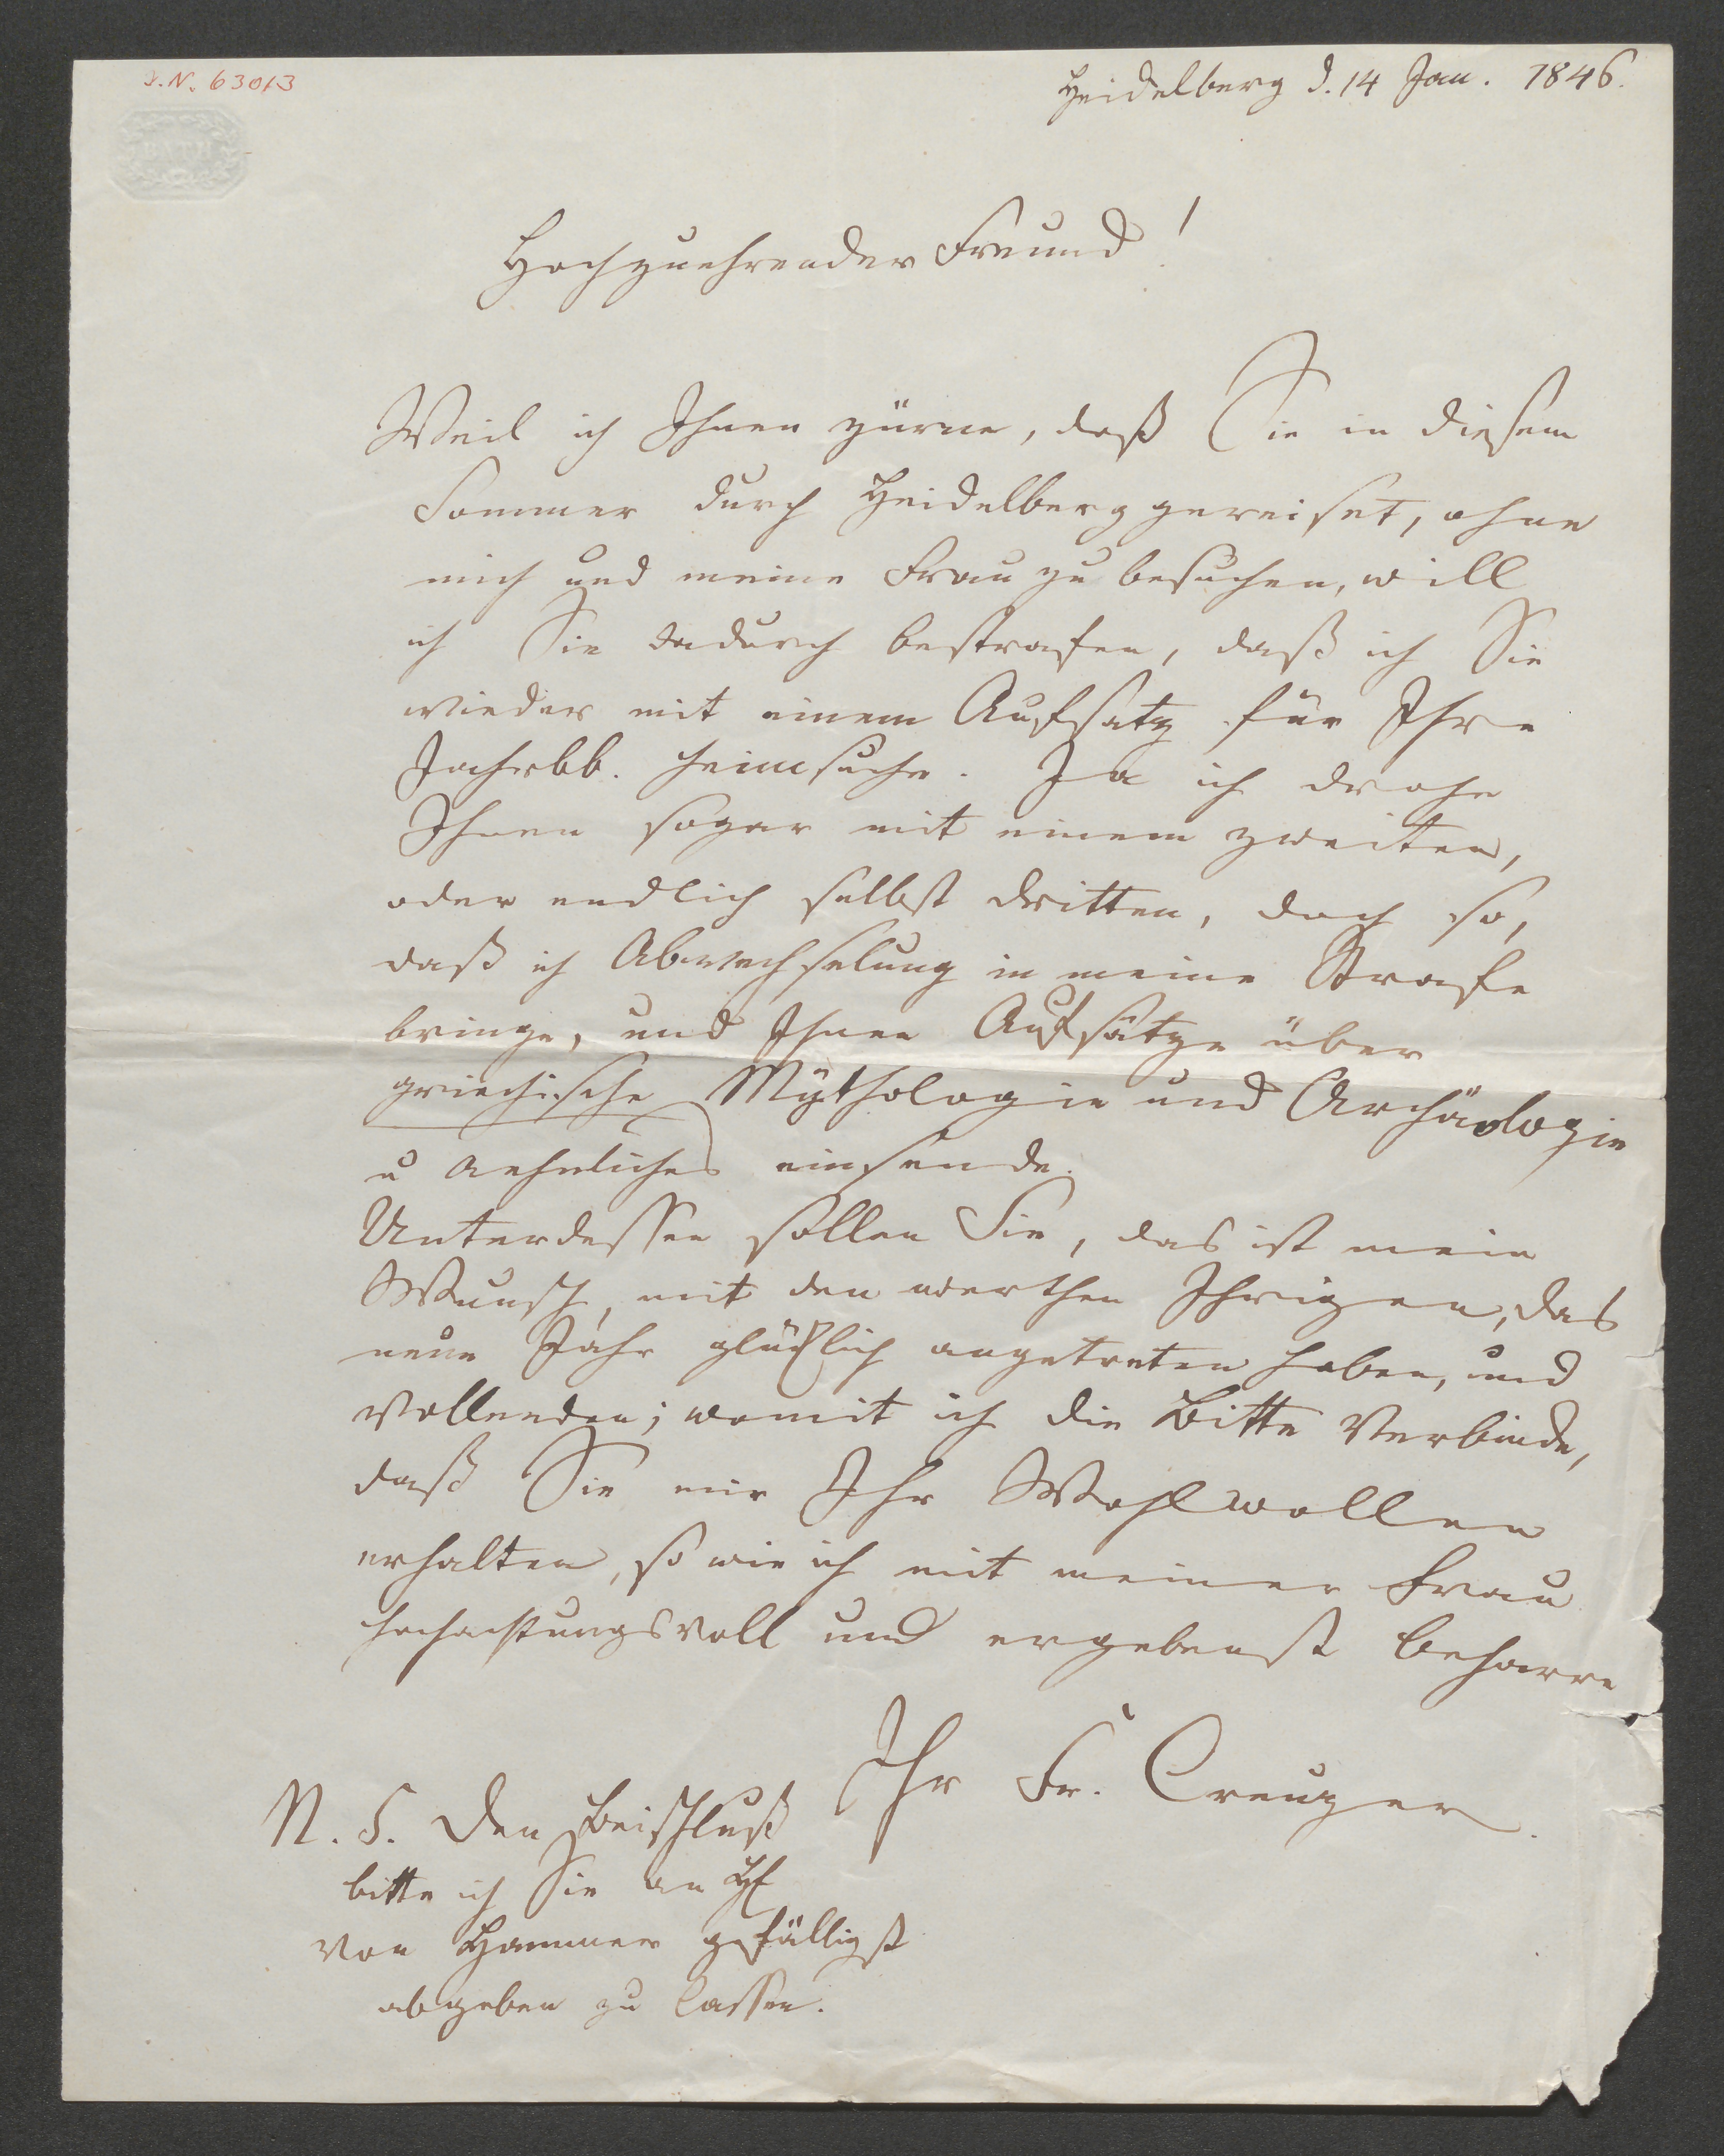 I.N. 63013
BATH
Heidelberg d. 14 Jan. 1846.
Hochzuehrender Freund!
Weil ich Ihnen zürne, daß Sie in diesem
Sommer durch Heidelberg gereiset, ohne
mich und meine Frau zu besuchen, will
ich Sie dadurch bestrafen, daß ich Sie
wieder mit einem Aufsatz für Ihre
Jahrbb. heimsuche. Ja ich drohe
Ihnen sogar mit einem zweiten,
oder endlich selbst dritten, doch so,
daß ich Abwechselung in meine Strafe
bringe, und Ihnen Aufsätze über
griechische Mythologie und Archäologie
u Aehnliches einsende.
Unterdessen sollen Sie, das ist mein
Wunsch, mit den werthen Ihrigen, das
neue Jahr glücklich angetreten haben, und
vollenden; womit ich die Bitte verbinde,
daß Sie mir Ihr Wohlwollen
erhalten, so wie ich mit meiner Frau
hochachtungsvoll und ergebenst beharre
Ihr Fr. Creuzer.
N. S. Den Beischluß
bitte ich Sie an H
von Hammer gefälligst
abgeben zu lassen.